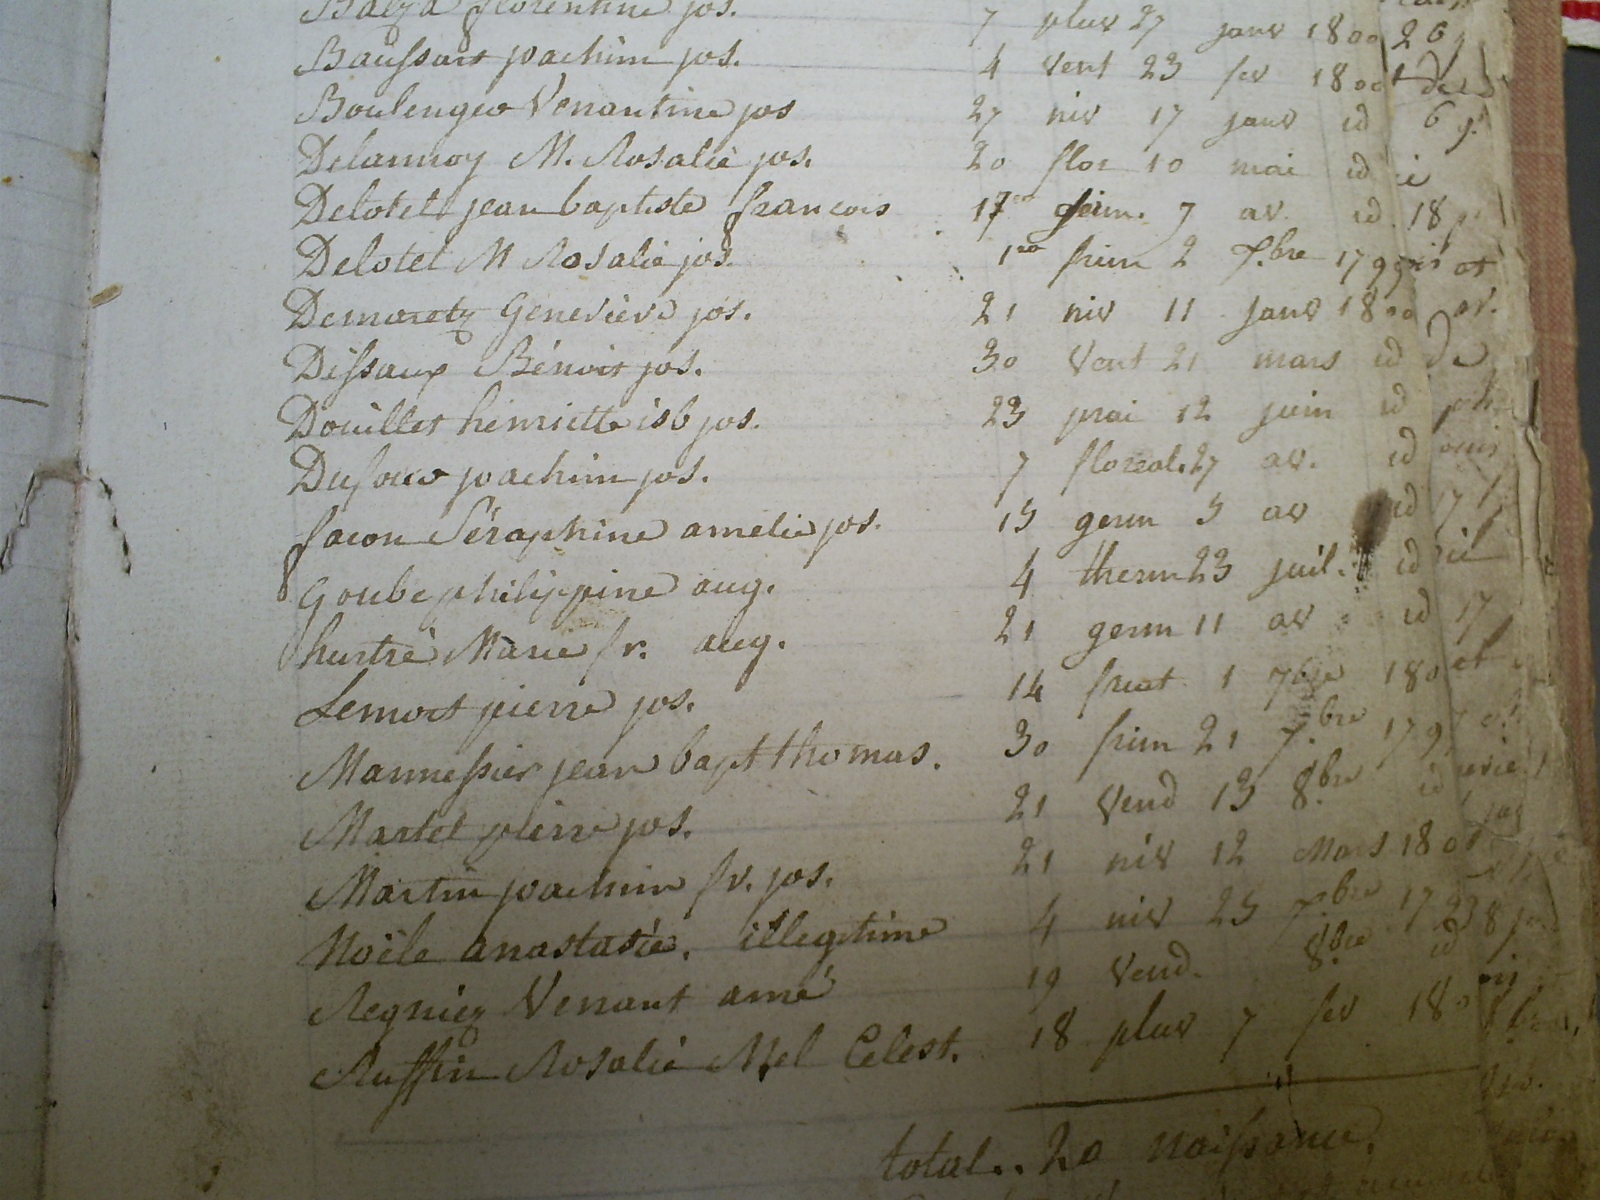 Balza florentine jos. 7 pluv 27 janv 1800
Baussart joachim jos. 4 vent 23 fev 1800
Boulenger Venantine jos 27 niv 17 janv id
Delannoy M. Rosalie jos. 20 flor 10 mai id
Delotel jean baptiste françois 17 germ. 7 av. id
Delotel M Rosalie jos. 1er frim 2 Xbre 1799
Demoretz Geneviève jos. 21 niv 11 janv 1800
Dissaux Bénoit jos. 30 vent 21 mars id
Douillet henriette isb jos. 23 prai 12 juin id
Dufour joachim jos. 7 floreal. 27 av. id
facon Séraphine amélie jos. 13 germ 3 av id
Goube philippine aug. 4 therm 23 juil. id
hurtré Marie fr. aug. 21 germ 11 av id
Lemort pierre jos. 14 fruct 1 7bre 180
Mannessier jean bapt thomas. 30 frim 21 Xbre 179
Martel pierre jos. 21 vend 13 8bre id
Martin joachim fr. jos. 21 niv 12 Mars 180
Noële anastasie. illegitime 4 niv 25 Xbre 1799
Regniez Venant amé 19 vend. 8bre id
Ruffin Rosalie Mel Celest. 18 pluv 7 fev 180
total.. 20 naissance.